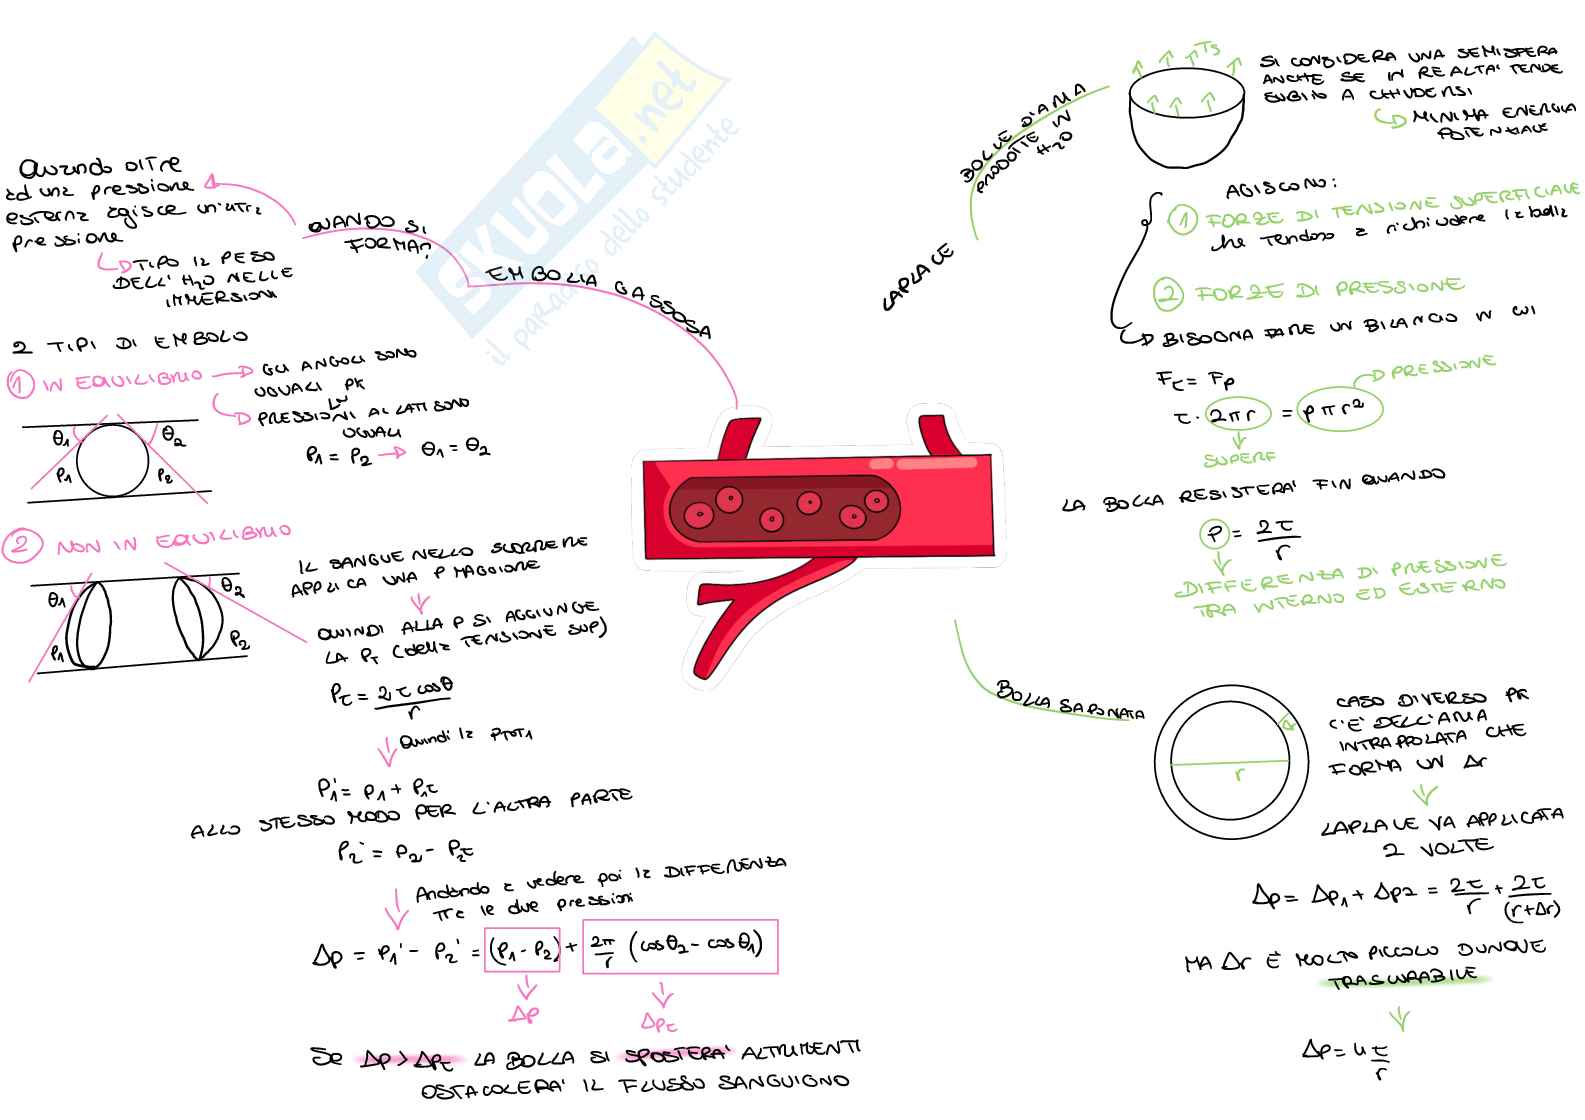 SKUOLA.net
il paradiso dello studente
Quando oltre
ad una pressione
esterna agisce un'altra
pressione
TIPO la PESO
DELL'H2O NELLE
IMMERSIONI
QUANDO SI
FORMA?
EMBOLIA GASSOSA
2 TIPI DI EMBOLO
1 IN EQUILIBRIO → GLI ANGOLI SONO
UGUALI PK
PRESSIONI AI LATI SONO
UGUALI
P1 = P2 → θ1 = θ2
θ1 θ2
P1 P2
2 NON IN EQUILIBRIO
θ1 θ2
P1 P2
IL SANGUE NELLO SCORRERE
APPLICA UNA P MAGGIORE
QUINDI ALLA P SI AGGIUNGE
LA Pτ (della TENSIONE SUP)
Pτ = 2τ cosθ / r
Quindi la PTOT1
P1' = P1 + P1τ
ALLO STESSO MODO PER L'ALTRA PARTE
P2' = P2 - P2τ
Andando a vedere poi la DIFFERENZA
Tra le due pressioni
Δp = P1' - P2' = (P1 - P2) + 2π/r (cosθ2 - cosθ1)
ΔP ΔPτ
Se Δp > Δpτ LA BOLLA SI SPOSTERA' ALTRIMENTI
OSTACOLERA' IL FLUSSO SANGUIGNO
LAPLACE
BOLLE D'ARIA
PRODOTTE IN
H2O
Ts
SI CONSIDERA UNA SEMISFERA
ANCHE SE IN REALTA' TENDE
SUBITO A CHIUDERSI
MINIMA ENERGIA
POTENZIALE
AGISCONO:
1 FORZE DI TENSIONE SUPERFICIALE
che tendono a richiudere la bolla
2 FORZE DI PRESSIONE
BISOGNA FARE UN BILANCIO IN CUI
Fτ = Fp
τ · 2πr = pπr²
PRESSIONE
SUPERF
LA BOLLA RESISTERA' FIN QUANDO
P = 2τ / r
DIFFERENZA DI PRESSIONE
TRA INTERNO ED ESTERNO
BOLLA SAPONATA
r
CASO DIVERSO PK
C'E' DELL'ARIA
INTRAPPOLATA CHE
FORMA UN Δr
LAPLACE VA APPLICATA
2 VOLTE
Δp = Δp1 + Δp2 = 2τ/r + 2τ/(r+Δr)
MA Δr E' MOLTO PICCOLO DUNQUE
TRASCURABILE
Δp = 4 τ/r